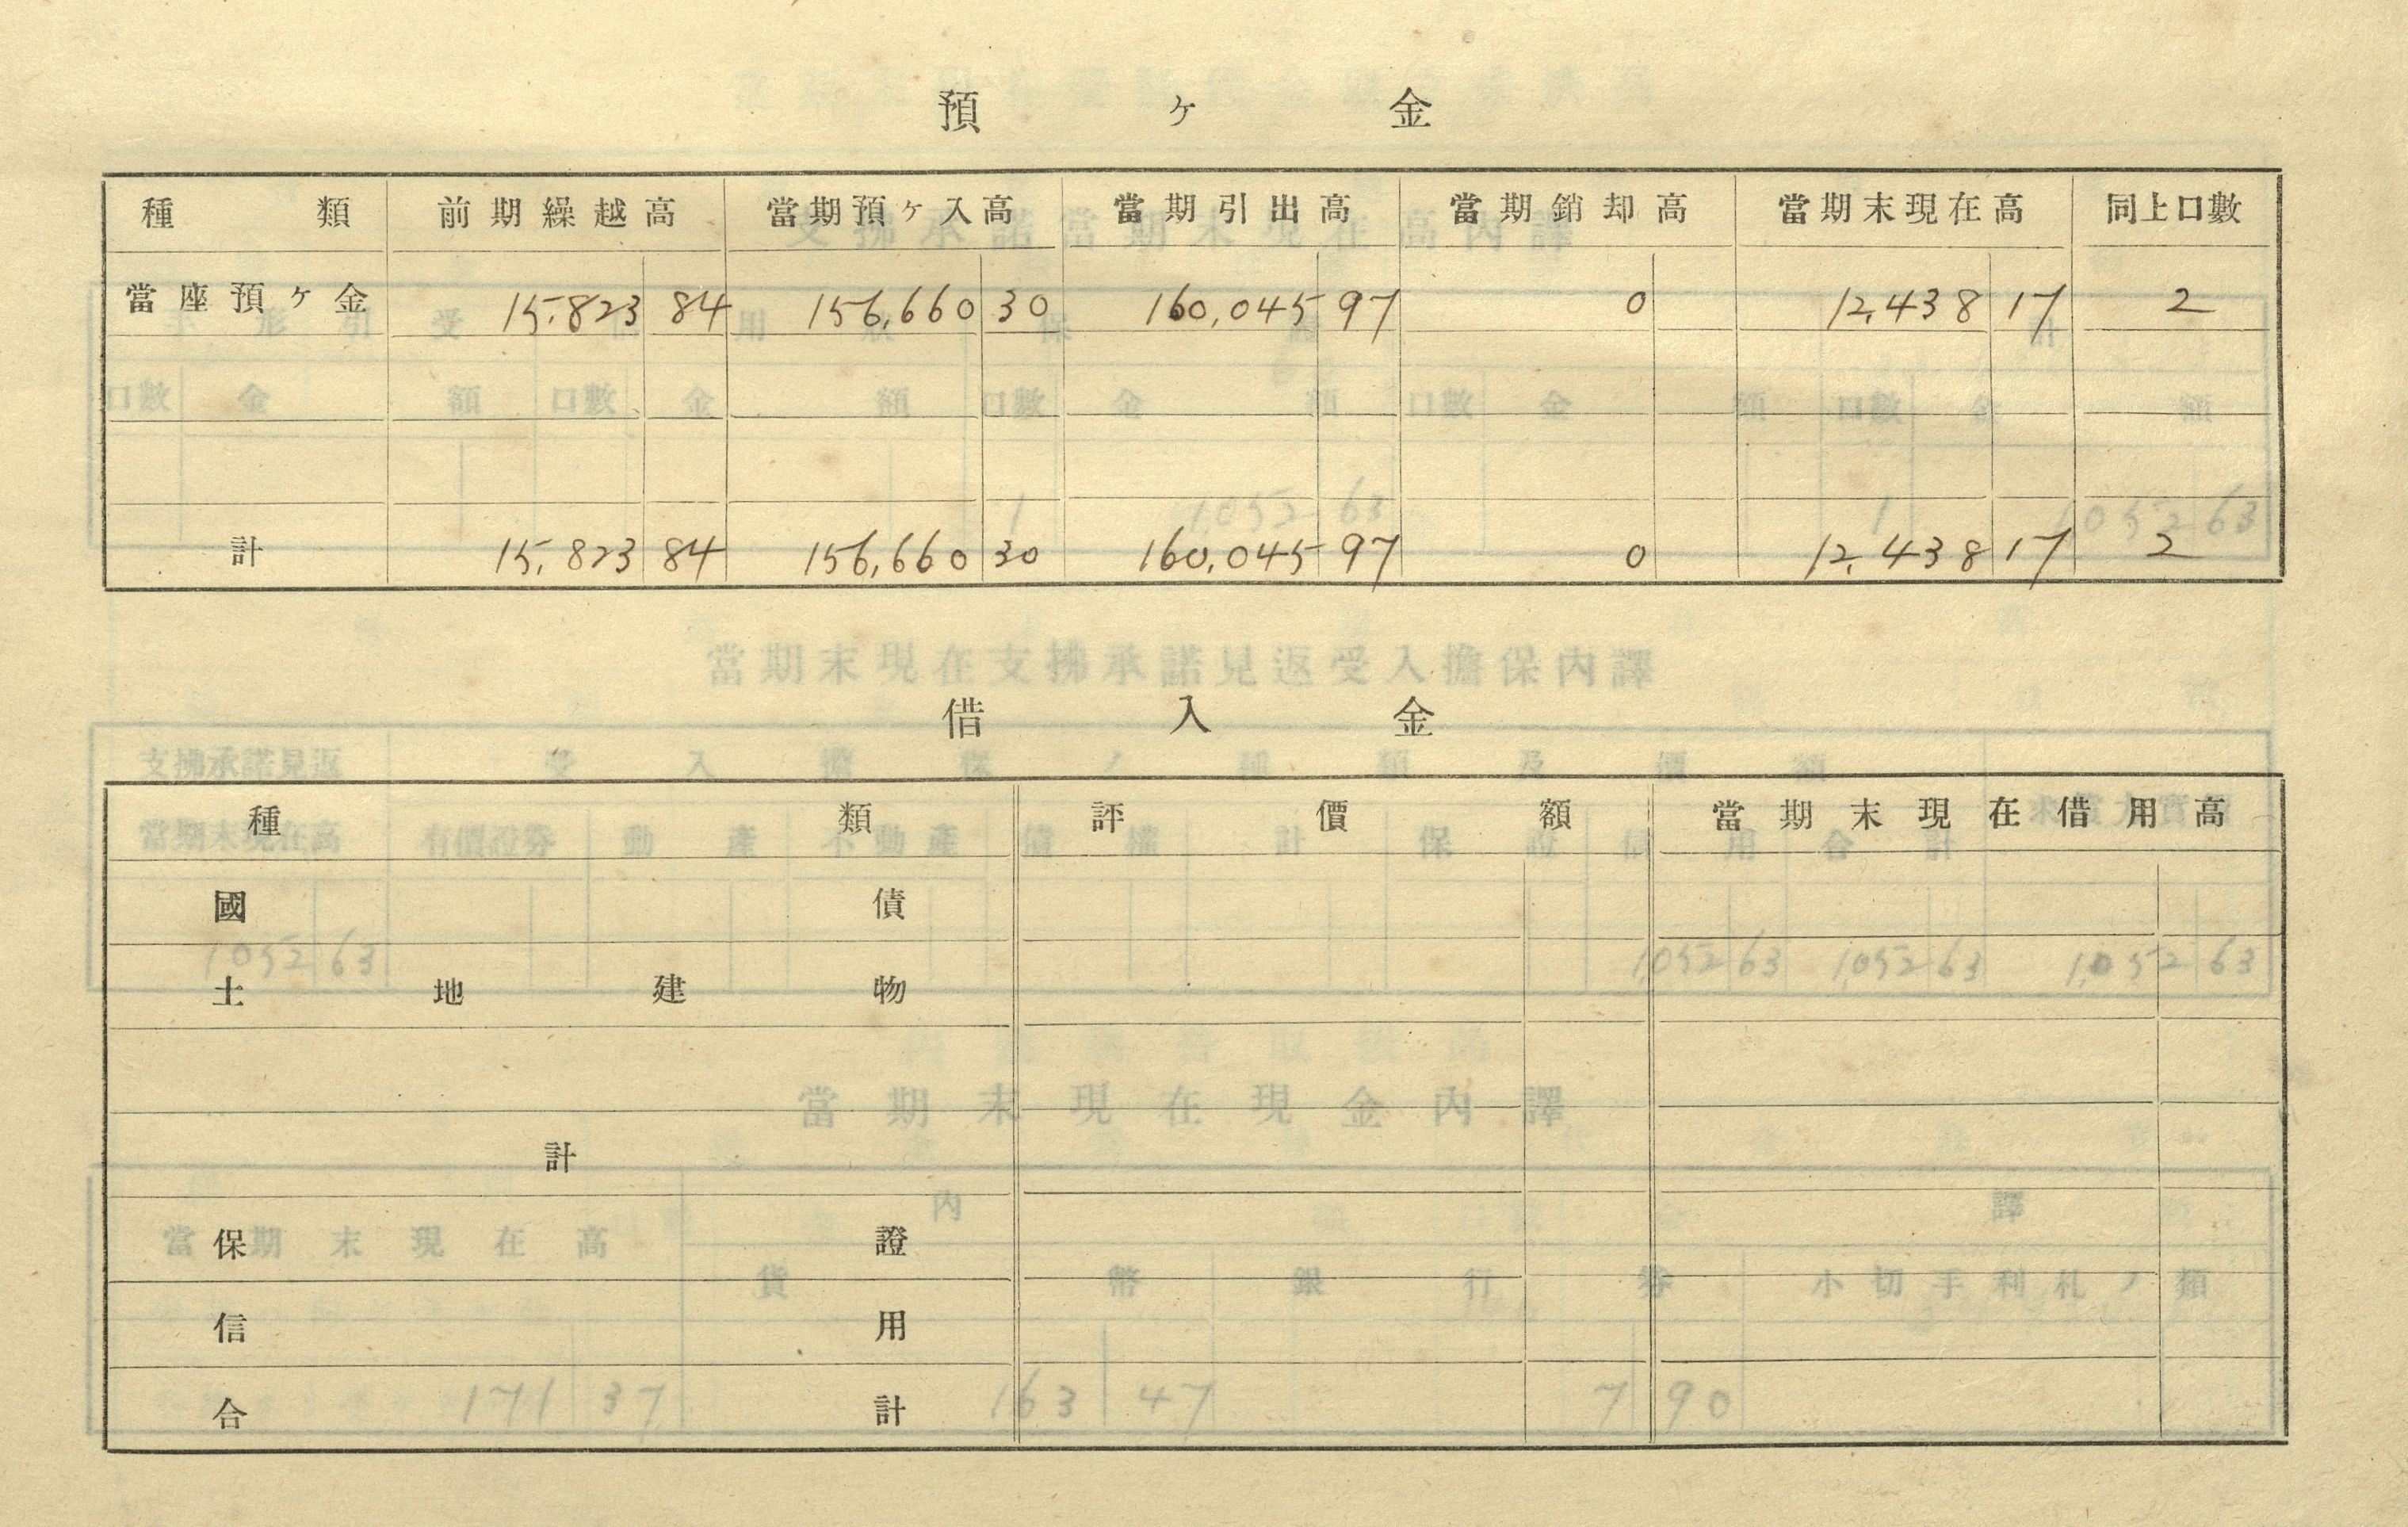 預ヶ金
種類 前期繰越高 當期預ヶ入高 當期引出高 當期銷却高 當期末現在高 同上口數
當座預ヶ金 15,823 84 156,660 30 160,045 97 0 12,438 17 2
計 15,823 84 156,660 30 160,045 97 0 12,438 17 2
借入金
種類 評價額 當期末現在借用高
國債
土地建物
計
保證
信用
合計